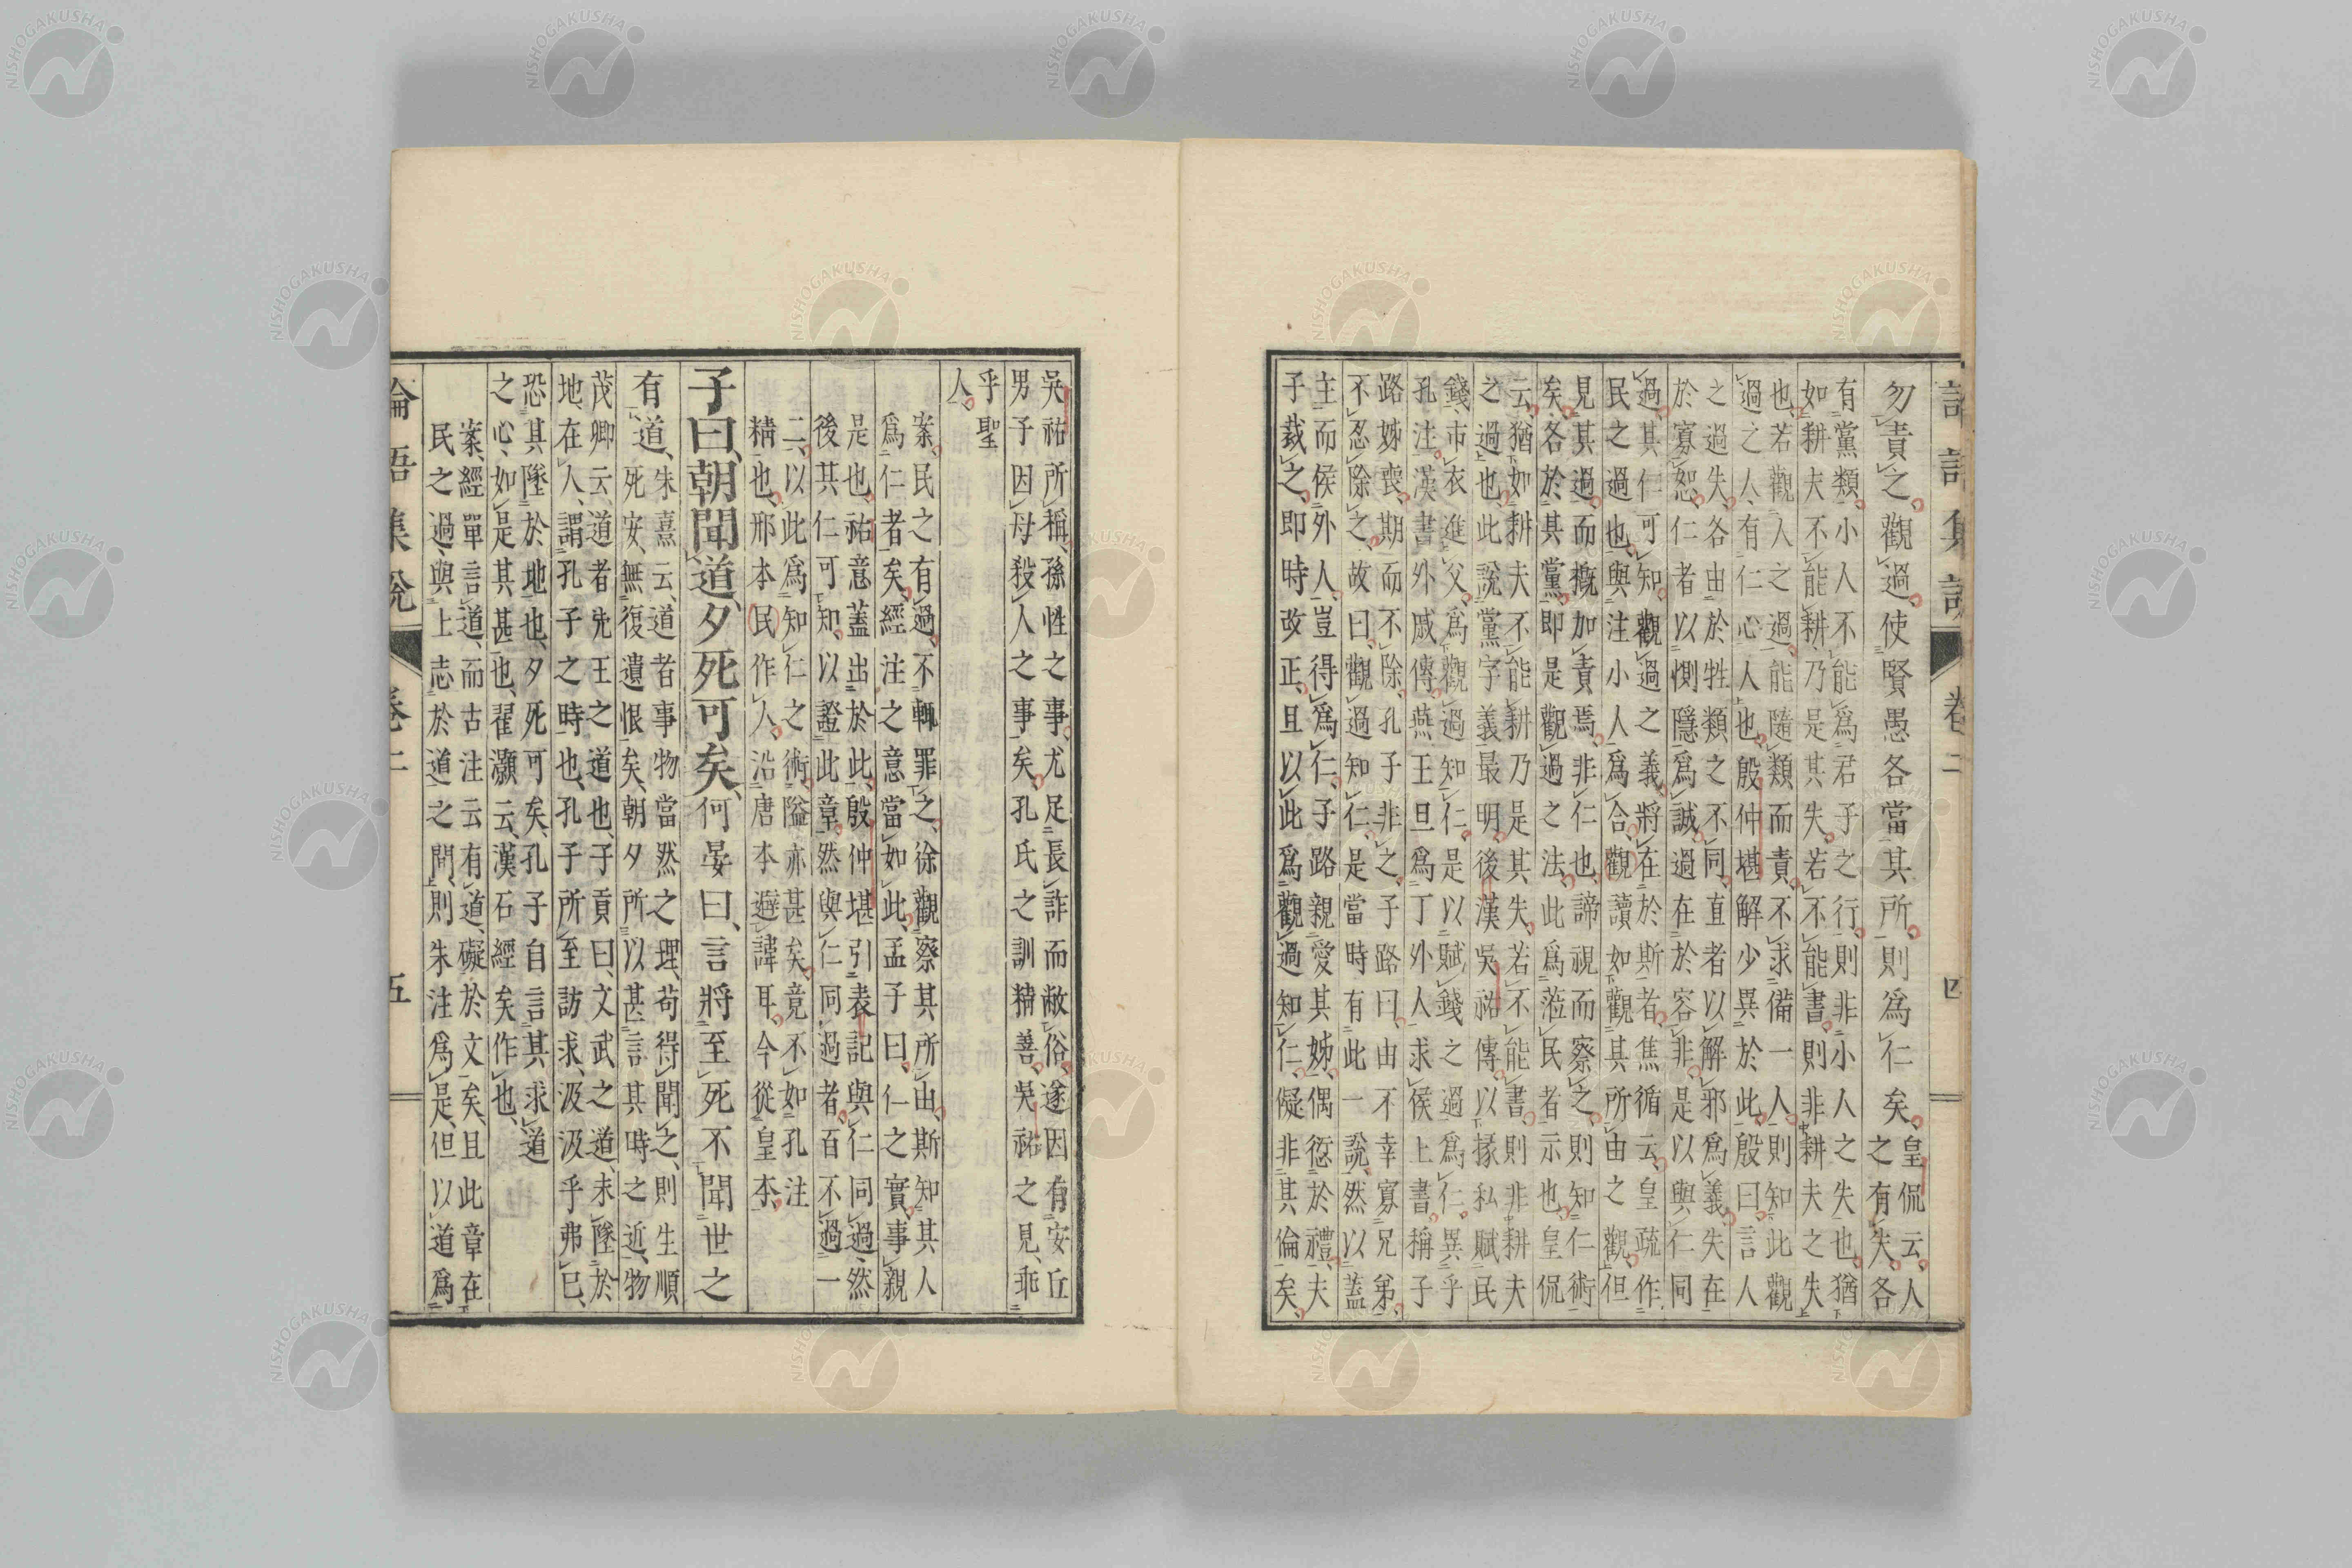 論語集說 卷二 四
勿責之。觀過。使賢愚各當其所。則爲仁矣。皇侃云、人
之有失、各
有黨類。小人不能爲君子之行。則非小人之失也。猶
如耕夫不能耕、乃是其失。若不能書。則非耕夫之失
也。若觀人之過。能隨類而責。不求備一人。則知此觀
過之人。有仁心人也。殷仲堪解少異於此。殷曰。言人
之過失。各由於性類之不同。直者以解邪爲義。失在
於寡恕。仁者以惻隱爲誠。過在於容非。是以與仁同
過。其仁可知。觀過之義。將在於斯者。焦循云。皇疏作
民之過也。與注小人爲合。觀讀如觀其所由之觀。但
見其過。而概加責焉。非仁也。諦視而察之。則知仁術
矣。各於其黨。即是觀過之法。此爲蒞民者示也。皇侃
云。猶如耕夫不能耕乃是其失。若不能書。則非耕夫
之過也。此說黨字義最明。後漢吳祐傳。以掾私賦民
錢、市衣進父、爲觀過知仁。是以賦錢之過爲仁。異乎
孔注。漢書外戚傳。燕王旦爲丁外人求侯上書。稱子
路姊喪。期而不除、孔子非之。子路曰。由不幸寡兄弟。
不忍除之。故曰、觀過知仁。是當時有此一說。然以蓋
主而侯外人。豈得爲仁。子路親愛其姊。偶愆於禮。夫
子裁之、即時改正、且以此爲觀過知仁。儗非其倫矣。
吳祐所稱、孫性之事。尤足長詐而敝俗。遂因有安丘
男子因母殺人之事矣。孔氏之訓精善。吳祐之見、乖
乎聖
人。
案。民之有過。不輒罪之、徐觀察其所由。斯知其人
爲仁者矣。經注之意當如此。孟子曰、仁之實。事親
是也。祐意蓋出於此、殷仲堪引表記與仁同過、然
後其仁可知。以證此章。然與仁同過者。百不過一
二。以此爲知仁之術。隘亦甚矣。竟不如孔注
精也。邢本民作人。沿唐本避諱耳。今從皇本。
子曰、朝聞道、夕死可矣、何晏曰、言將至死不聞世之
有道、朱熹云、道者事物當然之理、苟得聞之、則生順
死安、無復遺恨矣、朝夕所以甚言其時之近、物
茂卿云、道者先王之道也、子貢曰、文武之道、未墜於
地、在人、謂孔子之時也、孔子所至訪求、汲汲乎弗已、
恐其墜於地也、夕死可矣、孔子自言其求道
之心、如是其甚也、翟灝云、漢石經矣作也、
案、經單言道、而古注云有道、礙於文矣、且此章在
民之過、與上志於道之間、則朱注爲是、但以道爲
論語集說 卷二 五